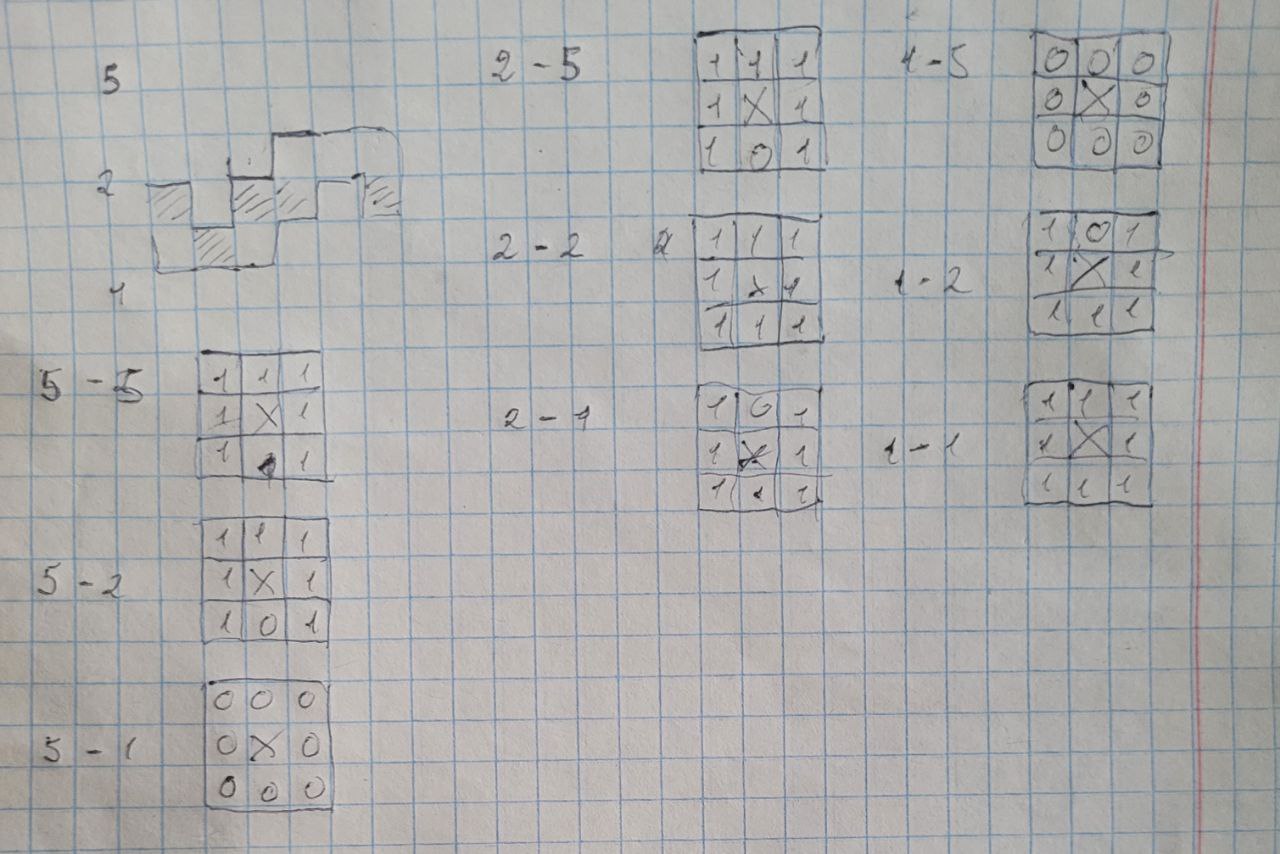 5
2
1
5 - 5
1 1 1
1 X 1
1 1
5 - 2
1 1 1
1 X 1
1 0 1
5 - 1
0 0 0
0 X 0
0 0 0
2 - 5
1 1 1
1 X 1
1 0 1
2 - 2
2
1 1 1
1 X 1
1 1 1
2 - 1
1 0 1
1 X 1
1 1 1
1 - 5
0 0 0
0 X 0
0 0 0
1 - 2
1 0 1
1 X 1
1 1 1
1 - 1
1 1 1
1 X 1
1 1 1